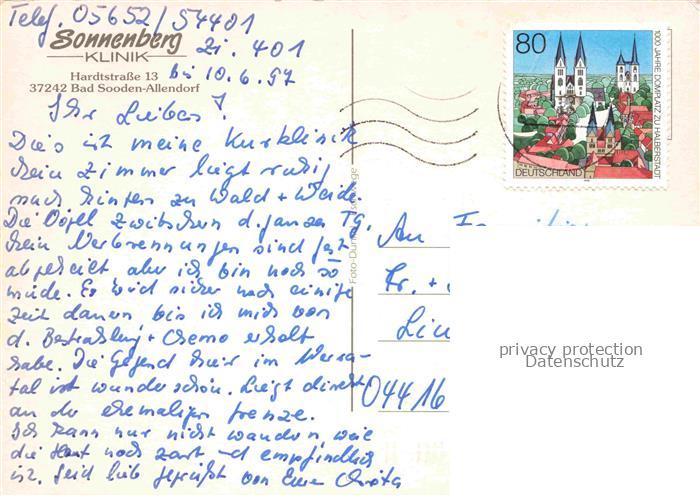 Telef. 05652/54401
Sonnenberg
KLINIK
Zi. 401
Hardtstraße 13
bis 10.6.97
37242 Bad Sooden-Allendorf
Ihr Lieben!
Dies ist meine Kurklinik
Mein Zimmer liegt ruhig
nach hinten zu Wald + Weide.
Die Vögel zwitschern d. ganzen Tg.
Meine Verbrennungen sind fast
abgeheilt aber ich bin noch so
müde. Es wird sicher noch einige
Zeit dauern bis ich mich von
d. Bestrahlung + Chemo erholt
habe. Die Gegend hier im Werra-
tal ist wunderschön. Liegt direkt
an der ehemaligen Grenze.
Ich kann nur nicht wandern, weil
die Haut noch zart und empfindlich
ist. Seid lieb gegrüßt von Eure
80
1000 JAHRE DOMPLATZ ZU HALBERSTADT
DEUTSCHLAND
An
Fr. +
04416
privacy protection
Datenschutz